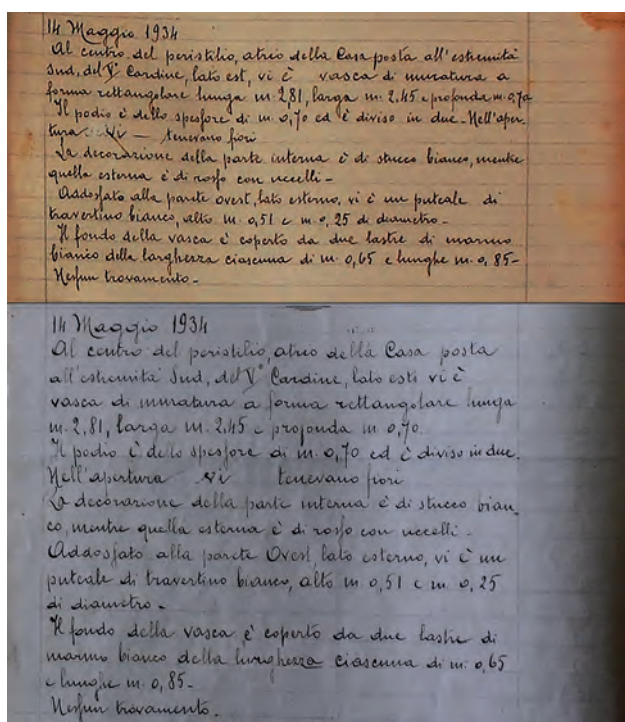 14 Maggio 1934
Al centro del peristilio, atrio della Casa posta all'estremità
Sud, del V° Cardine, lato est, vi è vasca di muratura a
forma rettangolare lunga m. 2,81, larga m. 2,45 e profonda m. 0,70
Il podio è dello spessore di m. 0,70 ed è diviso in due. Nell'aper-
tura vi — tenevano fiori
La decorazione della parte interna è di stucco bianco, mentre
quella esterna è di rosso con uccelli -
Addossato alla parete ovest, lato esterno, vi è un puteale di
travertino bianco, alto m. 0,51 e m. 0,25 di diametro -
Il fondo della vasca è coperto da due lastre di marmo
bianco della larghezza ciascuna di m. 0,65 e lunghe m. 0,85 -
Nessun trovamento -
14 Maggio 1934
Al centro del peristilio, atrio della Casa posta
all'estremità Sud, del V° Cardine, lato est, vi è
vasca di muratura a forma rettangolare lunga
m. 2,81, larga m. 2,45 e profonda m. 0,70.
Il podio è dello spessore di m. 0,70 ed è diviso in due.
Nell'apertura vi tenevano fiori
La decorazione della parte interna è di stucco bian-
co, mentre quella esterna è di rosso con uccelli -
Addossato alla parete Ovest, lato esterno, vi è un
puteale di travertino bianco, alto m. 0,51 e m. 0,25
di diametro -
Il fondo della vasca è coperto da due lastre di
marmo bianco della ciascuna di m. 0,65
e lunghe m. 0,85 -
Nessun trovamento.